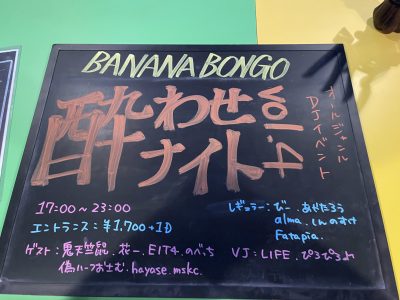 BANANA BONGO
酔わせ
ナイト
vol.4
オールジャンル
DJイベント
17:00〜23:00
エントランス:¥1,700+1D
ゲスト:鬼天竺鼠、花一、EIT4、のべっち
hayase、mskc、
レギュラー:びー、あやたろう
alma、しんのすけ
Fatapia、
VJ:LIFE、ぴろぴろよ